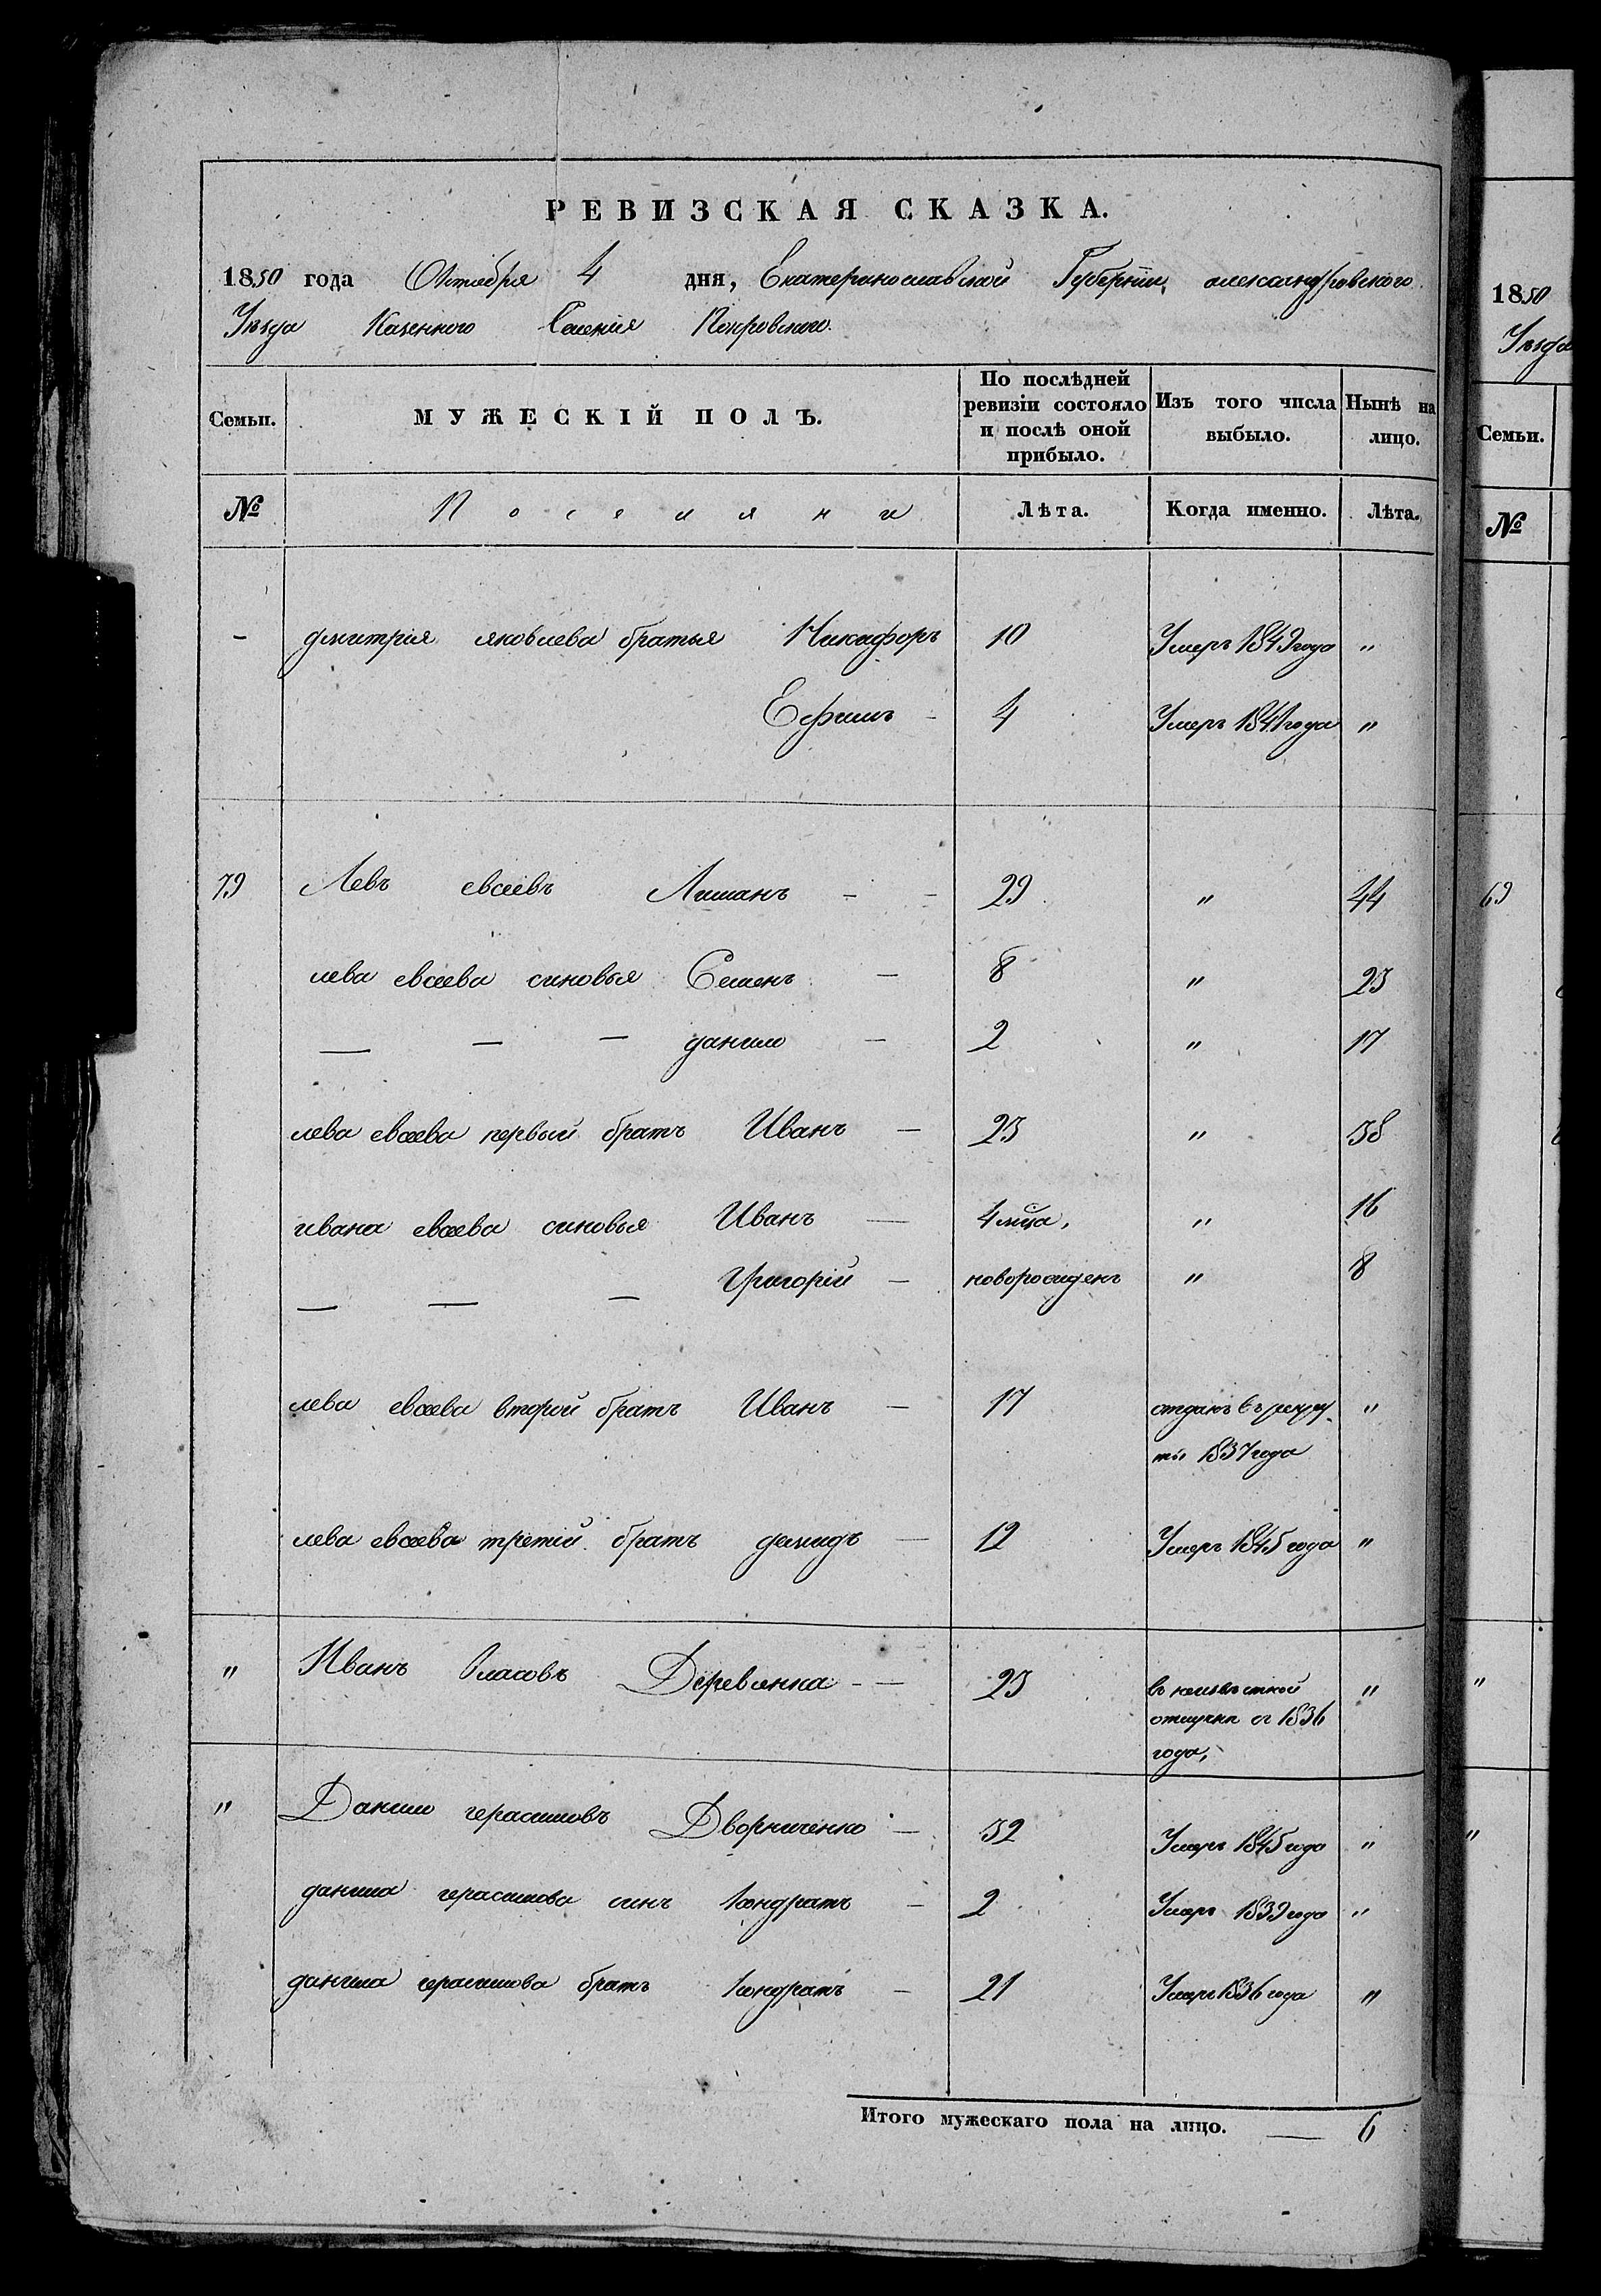 РЕВИЗСКАЯ СКАЗКА.
1850 года Октября 4 дня, Екатеринославской Губерніи, александровского
Уѣзда Казенного Селенія Покровского.
Семьи. МУЖЕСКІЙ ПОЛЪ. По послѣдней ревизіи состояло и послѣ оной прибыло. Изъ того числа выбыло. Нынѣ на лицо.
№ Поселяни Лѣта. Когда именно. Лѣта.
- дмитрія яковлева братья Никифоръ 10 Умеръ 1849 года "
Ефимъ - 4 Умеръ 1841 года "
79 Левъ евсеевъ Лиманъ - - 29 " 44
лева евсеева синовья Семенъ - 8 " 23
— — — данило - 2 " 17
лева евсеева первый братъ Иванъ - 23 " 38
ивана евсеева синовья Иванъ — 4 мца, " 16
— — — Григорій - новорожденъ " 8
лева евсеева второй братъ Иванъ - 17 отданъ въ рекру-
ты 1837 года "
лева евсеева третій братъ демидъ — 12 Умеръ 1845 года "
" Иванъ Власовъ Деревянка - - 23 въ неизвѣстной
отлучки с 1836
года, "
" Данило герасимовъ Дворниченко - 32 Умеръ 1845 года "
данила герасимова синъ Кондратъ - 2 Умеръ 1839 года "
данила герасимова братъ Кондратъ - 21 Умеръ 1836 года "
Итого мужескаго пола на лицо. — 6
1850
Уѣзда
Семьи.
№
69
"
"